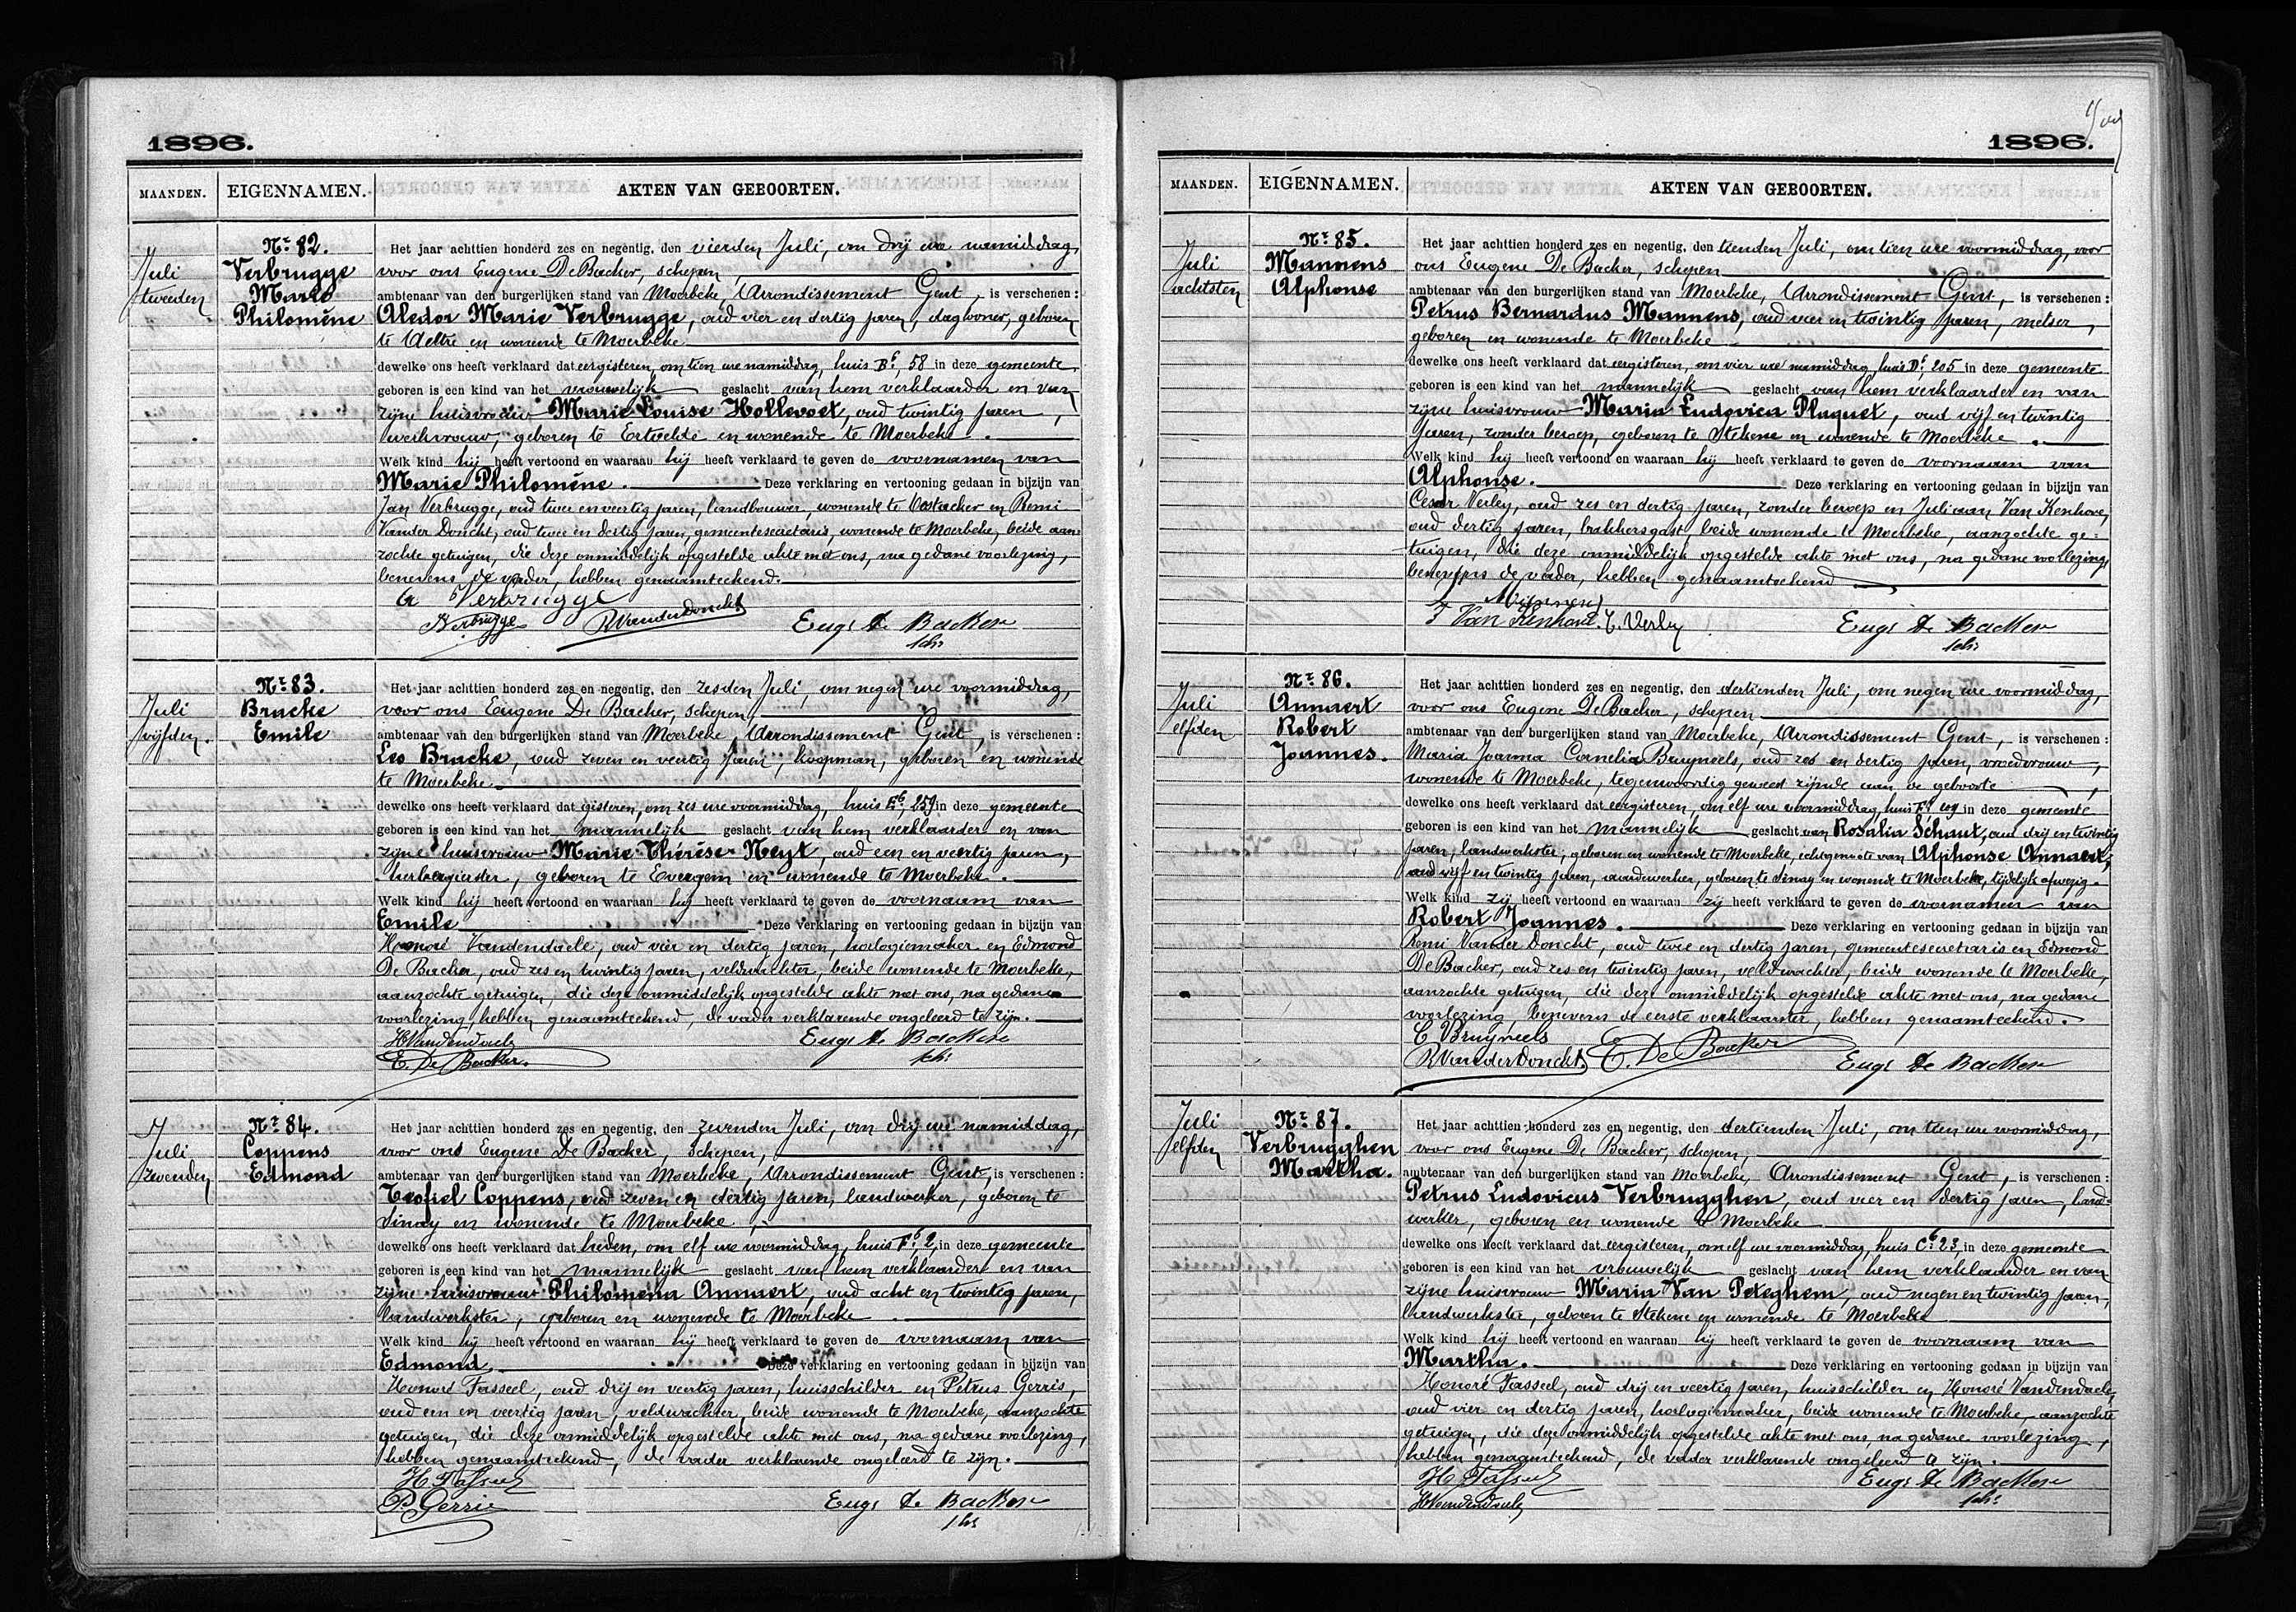 1896.
MAANDEN. EIGENNAMEN. AKTEN VAN GEBOORTEN.
Juli
tweeden
Nr 82.
Verbrugge
Marie
Philomène
Het jaar achttien honderd zes en negentig, den vierden Juli, om drij ure namiddag,
voor ons Eugene De Backer, schepen,
ambtenaar van den burgerlijken stand van Moerbeke, Arrondissement Gent, is verschenen :
Aledor Marie Verbrugge, oud vier en dertig jaren, dagloner, geboren
te Aeltre en wonende te Moerbeke
dewelke ons heeft verklaard dat eergisteren, om tien ure namiddag, huis B6, 58 in deze gemeente
geboren is een kind van het vrouwelijk geslacht van hem verklaarder en van
zijne huisvrouw Marie Louise Hollevoet, oud twintig jaren,
werkvrouw, geboren te Ertvelde en wonende te Moerbeke.
Welk kind hij heeft vertoond en waaraan hij heeft verklaard te geven de voornamen van
Marie Philomène. Deze verklaring en vertooning gedaan in bijzijn van
Jan Verbrugge, oud twee en veertig jaren, landbouwer, wonende te Oostacker en Remi
Vander Doncht, oud twee en dertig jaren, gemeentesecretaris, wonende te Moerbeke, beide aan-
zochte getuigen, die deze onmiddelijk opgestelde akte met ons, na gedane voorlezing,
benevens de vader, hebben genaamteekend.
A Verbrugge
J Verbrugge RVanderDoncht Eugs De Backer
schs
Juli
vijfden.
Nr 83.
Bracke
Emile
Het jaar achttien honderd zes en negentig, den zesden Juli, om negen ure voormiddag,
voor ons Eugene De Backer, schepen,
ambtenaar van den burgerlijken stand van Moerbeke, Arrondissement Gent, is verschenen :
Leo Bracke, oud zeven en veertig jaren, koopman, geboren en wonende
te Moerbeke.
dewelke ons heeft verklaard dat gisteren, om zes ure voormiddag, huis E6, 257 in deze gemeente
geboren is een kind van het mannelijk geslacht van hem verklaarder en van
zijne huisvrouw Marie Thérèse Neyt, oud een en veertig jaren,
herbergierster, geboren te Evergem en wonende te Moerbeke.
Welk kind hij heeft vertoond en waaraan hij heeft verklaard te geven de voornaam van
Emile Deze verklaring en vertooning gedaan in bijzijn van
Honoré Vandendaele, oud vier en dertig jaren, horlogiemaker en Edmond
De Backer, oud zes en twintig jaren, veldwachter, beide wonende te Moerbeke,
aanzochte getuigen, die deze onmiddelijk opgestelde akte met ons, na gedane
voorlezing, hebben genaamteekend, de vader verklarende ongeleerd te zijn.
HVandendaele Eugs De Backer
E. De Backer. schs
Juli
zevenden
Nr 84.
Coppens
Edmond
Het jaar achttien honderd zes en negentig, den zevenden Juli, om drij ure namiddag,
voor ons Eugene De Backer, schepen,
ambtenaar van den burgerlijken stand van Moerbeke, Arrondissement Gent, is verschenen :
Teofiel Coppens, oud zeven en dertig jaren, landwerker, geboren te
Sinay en wonende te Moerbeke,
dewelke ons heeft verklaard dat heden, om elf ure voormiddag, huis F6, 2, in deze gemeente
geboren is een kind van het mannelijk geslacht van hem verklaarder en van
zijne huisvrouw Philomena Annaert, oud acht en twintig jaren,
landwerkster, geboren en wonende te Moerbeke
Welk kind hij heeft vertoond en waaraan hij heeft verklaard te geven de voornaam van
Edmond. Deze verklaring en vertooning gedaan in bijzijn van
Honoré Fasseel, oud drij en veertig jaren, huisschilder en Petrus Gerris,
oud een en veertig jaren, veldwachter, beide wonende te Moerbeke, aanzochte
getuigen, die deze onmiddelijk opgestelde akte met ons, na gedane voorlezing,
hebben genaamteekend, de vader verklarende ongeleerd te zijn.
H Fasseel
P. Gerris Eugs De Backer
schs
1896.
MAANDEN. EIGENNAMEN. AKTEN VAN GEBOORTEN.
Juli
achtsten
Nr 85.
Mannens
Alphonse
Het jaar achttien honderd zes en negentig, den tienden Juli, om tien ure voormiddag, voor
ons Eugene De Backer, schepen
ambtenaar van den burgerlijken stand van Moerbeke, Arrondissement Gent, is verschenen :
Petrus Bernardus Mannens, oud vier en twintig jaren, metser,
geboren en wonende te Moerbeke
dewelke ons heeft verklaard dat eergisteren, om vier ure namiddag, huis D6, 205 in deze gemeente
geboren is een kind van het mannelijk geslacht van hem verklaarder en van
zijne huisvrouw Maria Ludovica Plaquet, oud vijf en twintig
jaren, zonder beroep, geboren te Stekene en wonende te Moerbeke.
Welk kind hij heeft vertoond en waaraan hij heeft verklaard te geven de voornaam van
Alphonse. Deze verklaring en vertooning gedaan in bijzijn van
Cesar Verley, oud zes en dertig jaren, zonder beroep en Juliaan Van Kenhove,
oud dertig jaren, bakkersgast, beide wonende te Moerbeke, aanzochte ge-
tuigen, die deze onmiddelijk opgestelde akte met ons, na gedane voorlezing,
benevens de vader, hebben genaamteekend
Mannens
J Van Kenhove. C. Verley Eugs De Backer
schs
Juli
elfden
Nr 86.
Annaert
Robert
Joannes.
Het jaar achttien honderd zes en negentig, den dertienden Juli, om negen ure voormiddag,
voor ons Eugene De Backer, schepen
ambtenaar van den burgerlijken stand van Moerbeke, Arrondissement Gent, is verschenen :
Maria Joanna Cornelia Bruyneels, oud zes en dertig jaren, vroedvrouw,
wonende te Moerbeke, tegenwoordig geweest zijnde aan de geboorte
dewelke ons heeft verklaard dat eergisteren, om elf ure voormiddag, huis F6, 109 in deze gemeente
geboren is een kind van het mannelijk geslacht van Rosalia Schaut, oud drij en twintig
jaren, landwerkster, geboren en wonende te Moerbeke, echtgenoote van Alphonse Annaert,
oud vijf en twintig jaren, aardewerker, geboren te Sinay en wonende te Moerbeke, tijdelijk afwezig.
Welk kind zij heeft vertoond en waaraan zij heeft verklaard te geven de voornamen van
Robert Joannes. Deze verklaring en vertooning gedaan in bijzijn van
Remi Vander Doncht, oud twee en dertig jaren, gemeentesecretaris en Edmond
De Backer, oud zes en twintig jaren, veldwachter, beide wonende te Moerbeke,
aanzochte getuigen, die deze onmiddelijk opgestelde akte met ons, na gedane
voorlezing, benevens de eerste verklaarster, hebben genaamteekend.
C Bruyneels
RVanderDoncht. E. De Backer Eugs De Backer
Juli
elfden
Nr 87.
Verbrugghen
Martha.
Het jaar achttien honderd zes en negentig, den dertienden Juli, om tien ure voormiddag,
voor ons Eugene De Backer, schepen,
ambtenaar van den burgerlijken stand van Moerbeke, Arrondissement Gent, is verschenen :
Petrus Ludovicus Verbrugghen, oud vier en dertig jaren, land-
werker, geboren en wonende te Moerbeke
dewelke ons heeft verklaard dat eergisteren, om elf ure voormiddag, huis C6 23, in deze gemeente
geboren is een kind van het vrouwelijk geslacht van hem verklaarder en van
zijne huisvrouw Maria Van Peteghem, oud negen en twintig jaren,
landwerkster, geboren te Stekene en wonende te Moerbeke
Welk kind hij heeft vertoond en waaraan hij heeft verklaard te geven de voornaam van
Martha. Deze verklaring en vertooning gedaan in bijzijn van
Honoré Fasseel, oud drij en veertig jaren, huisschilder en Honoré Vandendaele,
oud vier en dertig jaren, horlogiemaker, beide wonende te Moerbeke, aanzochte
getuigen, die deze onmiddelijk opgestelde akte met ons, na gedane voorlezing,
hebben genaamteekend, de vader verklarende ongeleerd te zijn.
H Fasseel Eugs De Backer
HVandendaele schs